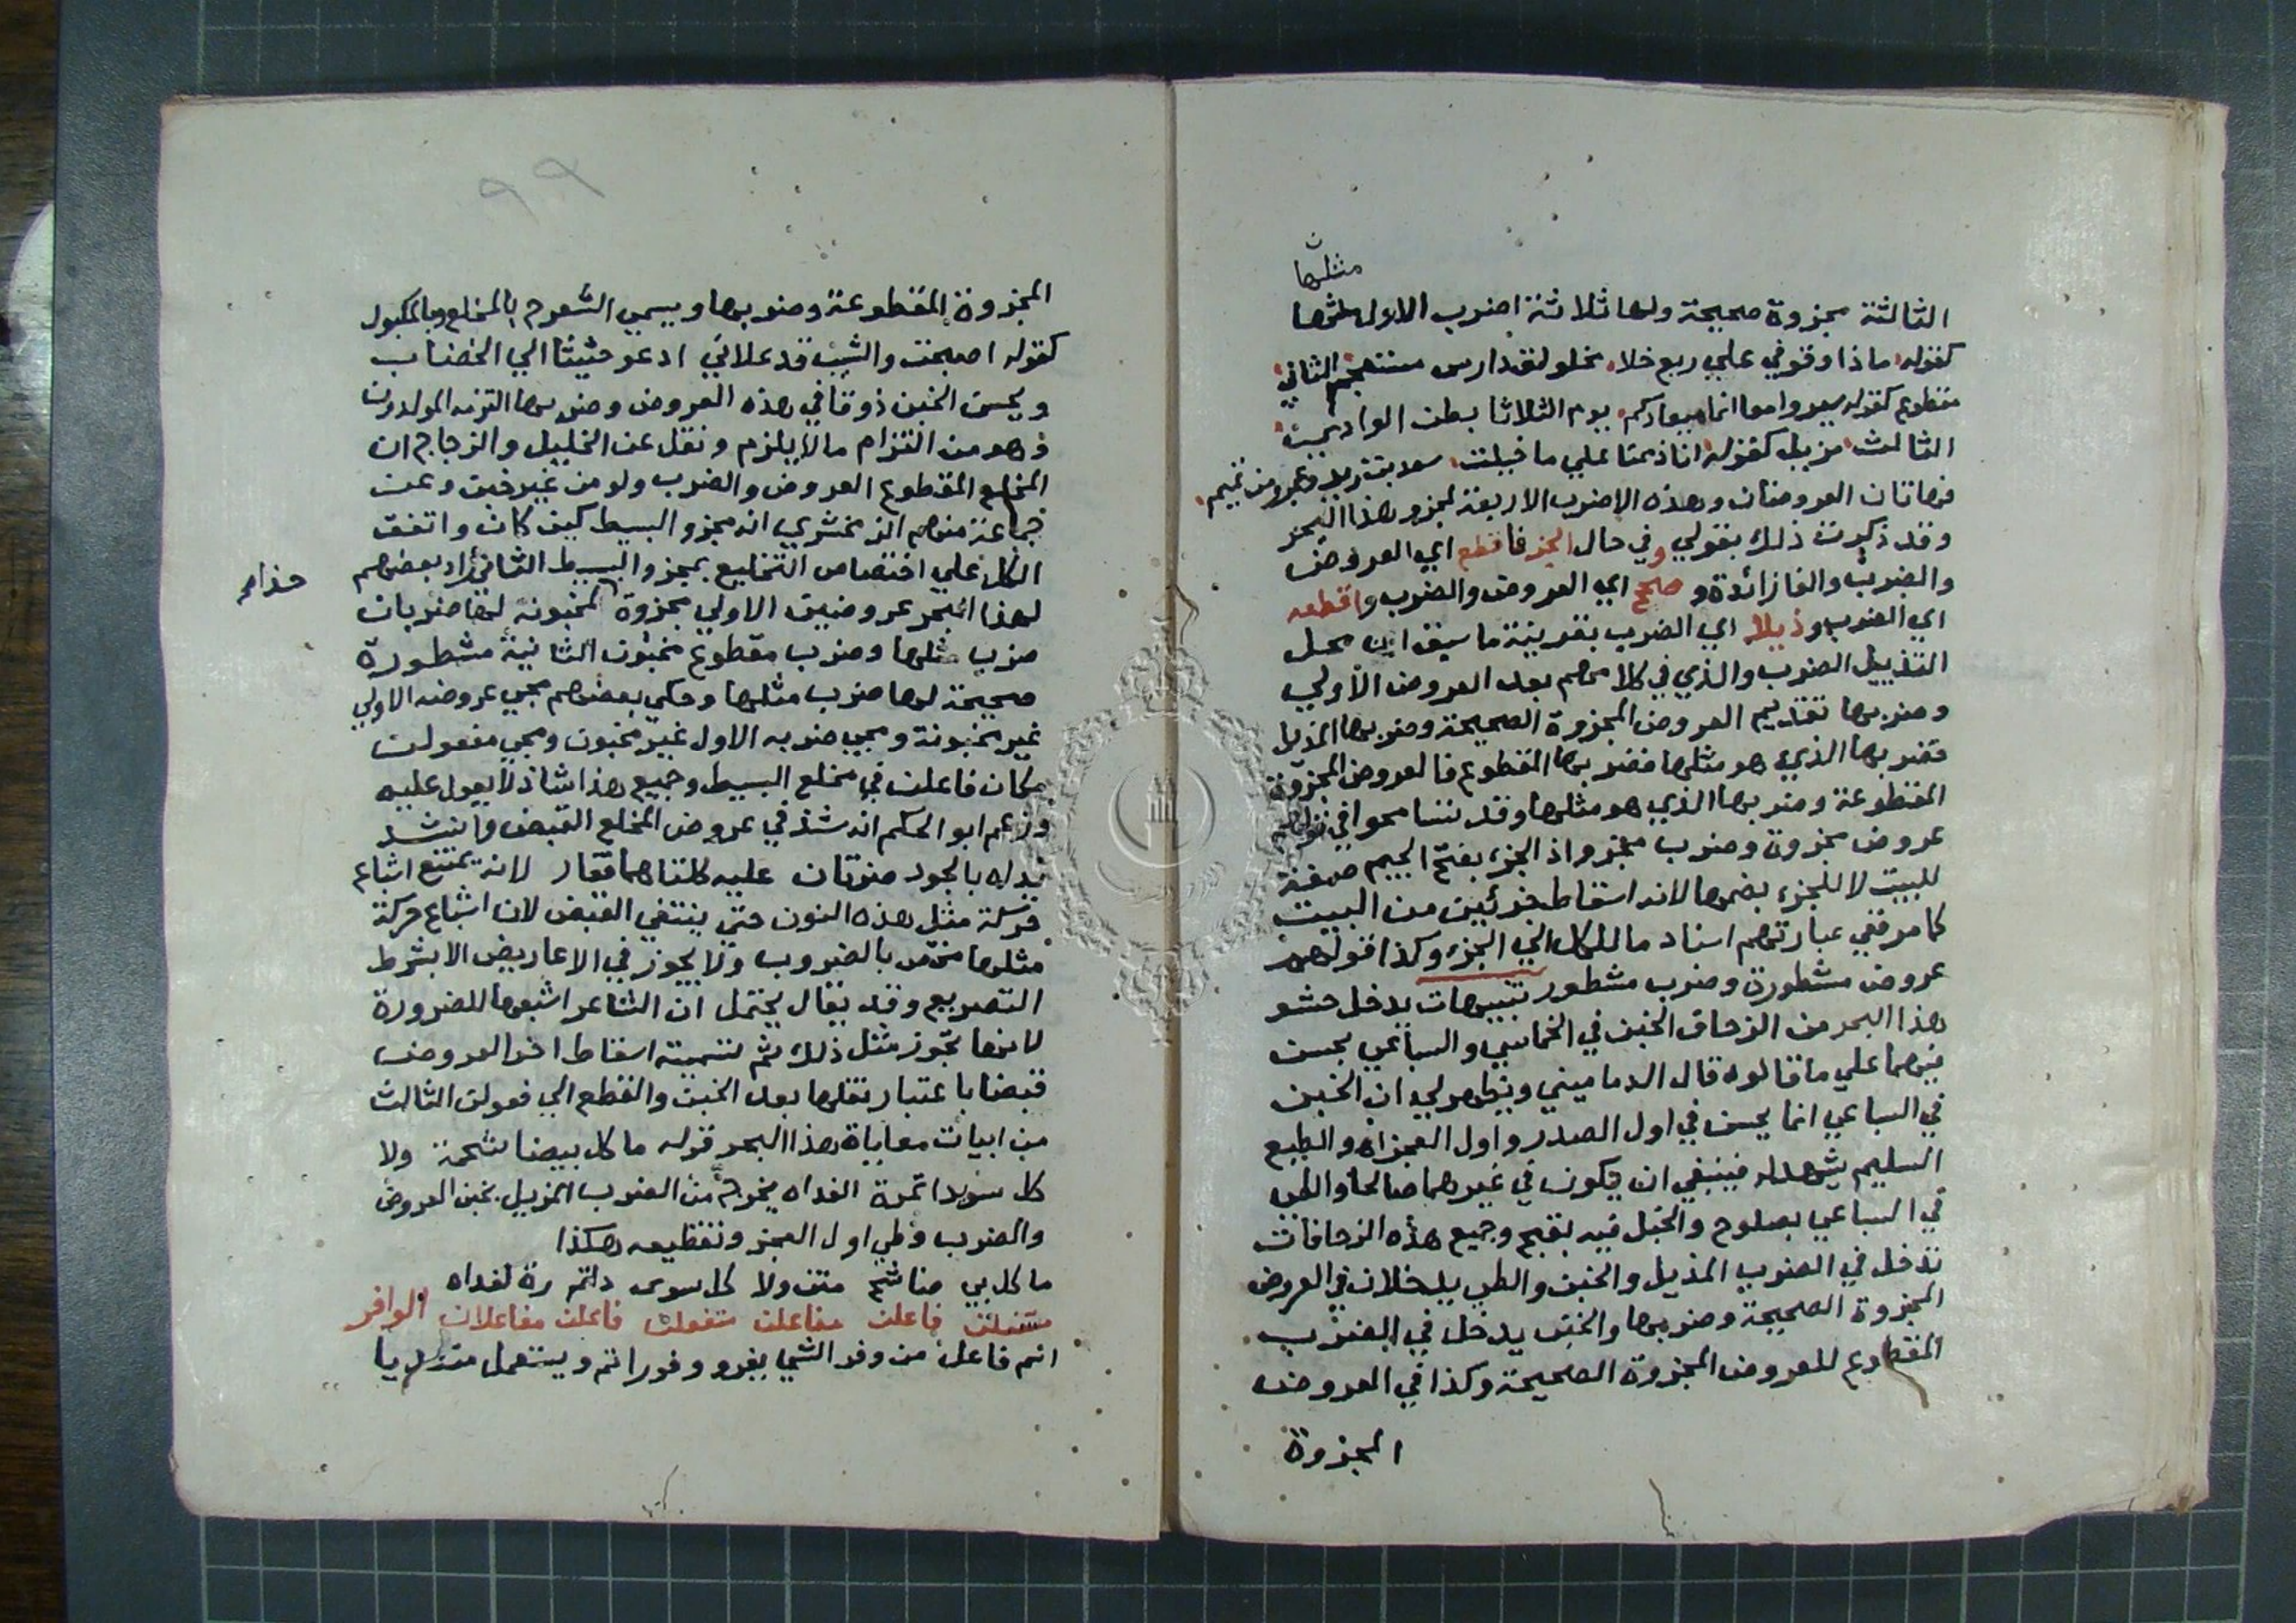 مثلها
الثالثة مجزوة صحيحة ولها ثلاثة اضرب الاول مثلها
كقوله ماذا وقوفي علي ربع خلا مخلولق دارس مستعجم الثاني
مقطوع كقوله سيروا معا انما ميعادكم يوم الثلاثا بطن الوادي
الثالث مزيل كقوله انا ذممنا علي ما خيلت سعد بن زيد وعمرو من تميم
فهاتان العروضان وهذه الاضرب الاربعة لمجزو هذا البحر
وقد ذكرت ذلك بقولي وفي حال الجز فاقطع اي العروض
والضرب والفا زائدة وصحح اي العروض والضرب واقطعه
اي الضرب وذيلا اي الضرب بقرينة ما سبق ان محل
التذييل الضرب والذي في كلامهم بعد العروض الاولي
وضربها تقديم العروض المجزوة الصحيحة وضربها المذيل
فضربها الذي هو مثلها فضربها المقطوع فالعروض المجزوة
المقطوعة وضربها الذي هو مثلها وقد تسامحوا في قولهم
عروض مجزوة وضرب مجزو اذ الجزء بفتح الجيم صفة
للبيت لا للجزء بضمها لانه اسقاط جزئين من البيت
كما مر ففي عبارتهم اسناد ما للكل الي الجزء وكذا قولهم
عروض مشطورة وضرب مشطور تنبيهات يدخل حشو
هذا البحر من الزحاف الخبن في الخماسي والسباعي بحسن
فيهما علي ما قالوه قال الدماميني ويظهر لي ان الخبن
في السباعي انما يحسن في اول الصدر واول العجزاه والطبع
السليم يشهد له فينبغي ان يكون في غيرهما صالحا والطي
في السباعي بصلوح والخبل فيه بقبح وجميع هذه الزحافات
تدخل في الضرب المذيل والخبن والطي يدخلان في العروض
المجزوة الصحيحة وضربها والخبن يدخل في الضرب
المقطوع للعروض المجزوة الصحيحة وكذا في العروض
المجزوة
٩٩
المجزوة المقطوعة وضربها ويسمي الشعر ح بالمخلع وبالمكبول
كقوله اصبحت والشيب قد علاني ادعو حثيثا الي الخضاب
ويحسن الخبن ذوقا في هذه العروض وضربها التزمه المولدون
فهو من التزام ما لا يلزم ونقل عن الخليل والزجاج ان
المخلع المقطوع العروض والضرب ولو من غير خبن وعن
جماعة منهم الزمخشري انه مجزو البسيط كيف كان واتفق
الكل علي اختصاص التخليع بمجزو البسيط الثاني زاد بعضهم
لهذا البحر عروضين الاولي مجزوة مخبونة لها ضربان
ضرب مثلها وضرب مقطوع مخبون الثانية مشطورة
صحيحة لها ضرب مثلها وحكي بعضهم مجي عروضه الاولي
غير مخبونة ومجي ضربه الاول غير مخبون ومجي مفعولن
مكان فاعلن في مخلع البسيط وجميع هذا شاذ لا يعول عليه
وزعم ابو الحكم انه شذ في عروض المخلع القبض وانشد
يداه بالجود ضرتان عليه كلتاهما تغار لانه يمتنع اشباع
حركة مثل هذه النون حتي ينتفي القبض لان اشباع حركة
مثلها مختص بالضروب ولا يجوز في الاعاريض الا بشرط
التصريع وقد يقال يحتمل ان الشاعر اشبعها للضرورة
لانها تجوز مثل ذلك ثم تسمية اسقاط اخر العروض
قبضا باعتبار نقلها بعد الخبن والقطع الي فعولن الثالث
من ابيات معاياة هذا البحر قوله ما كل بيضا شحمة ولا
كل سودا تمرة الغداه يخرج من الضرب المزيل بخبن العروض
والضرب وطي اول العجز وتقطيعه هكذا
ما كل بي ضا شح متن ولا كل سوى داتم رة لغداه
مستفعلن فاعلن مفاعلن متفعلن فاعلن مفاعلان الوافر
اسم فاعل من وفر الشي يفر و وفورا تم ويستعمل متعديا